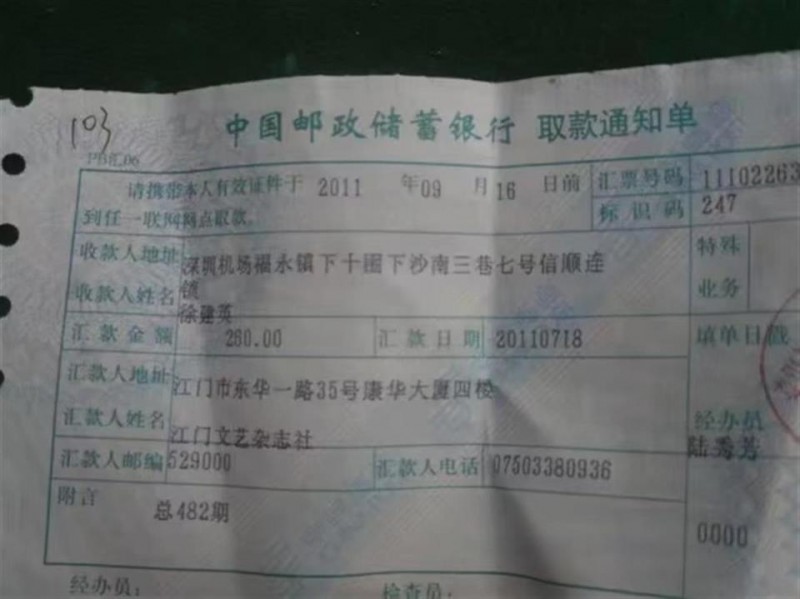 103
PBH.06
中国邮政储蓄银行 取款通知单
请携带本人有效证件于 2011 年 09 月 16 日前
到任一联网网点取款。
汇票号码 11102263
标识码 247
收款人地址 深圳机场福永镇下十围下沙南三巷七号信顺连
锁
收款人姓名 徐建英
特殊
业务
汇款金额 260.00 汇款日期 20110718 填单日戳
汇款人地址 江门市东华一路35号康华大厦四楼
汇款人姓名 江门文艺杂志社
经办员
陆秀芳
汇款人邮编 529000 汇款人电话 07503380936
附言 总482期
0000
经办员: 检查员: